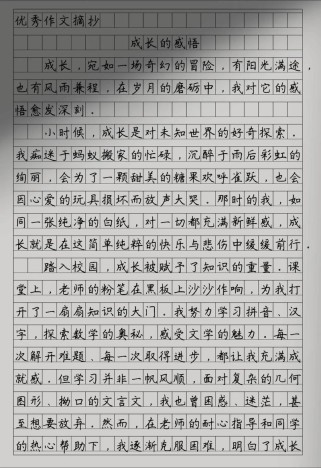 优秀作文摘抄
成长的感悟
成长，宛如一场奇幻的冒险，有阳光满途，
也有风雨兼程．在岁月的磨砺中，我对它的感
悟愈发深刻．
小时候，成长是对未知世界的好奇探索．
我痴迷于蚂蚁搬家的忙碌，沉醉于雨后彩虹的
绚丽，会为了一颗甜美的糖果欢呼雀跃，也会
因心爱的玩具损坏而放声大哭．那时的我，如
同一张纯净的白纸，对一切都充满新鲜感，成
长就是在这简单纯粹的快乐与悲伤中缓缓前行．
踏入校园，成长被赋予了知识的重量．课
堂上，老师的粉笔在黑板上沙沙作响，为我打
开了一扇扇知识的大门．我努力学习拼音、汉
字，探索数学的奥秘，感受文学的魅力．每一
次解开难题、每一次取得进步，都让我充满成
就感．但学习并非一帆风顺，面对复杂的几何
图形、拗口的文言文，我也曾困惑、迷茫，甚
至想要放弃．然而，在老师的耐心指导和同学
的热心帮助下，我逐渐克服困难，明白了成长